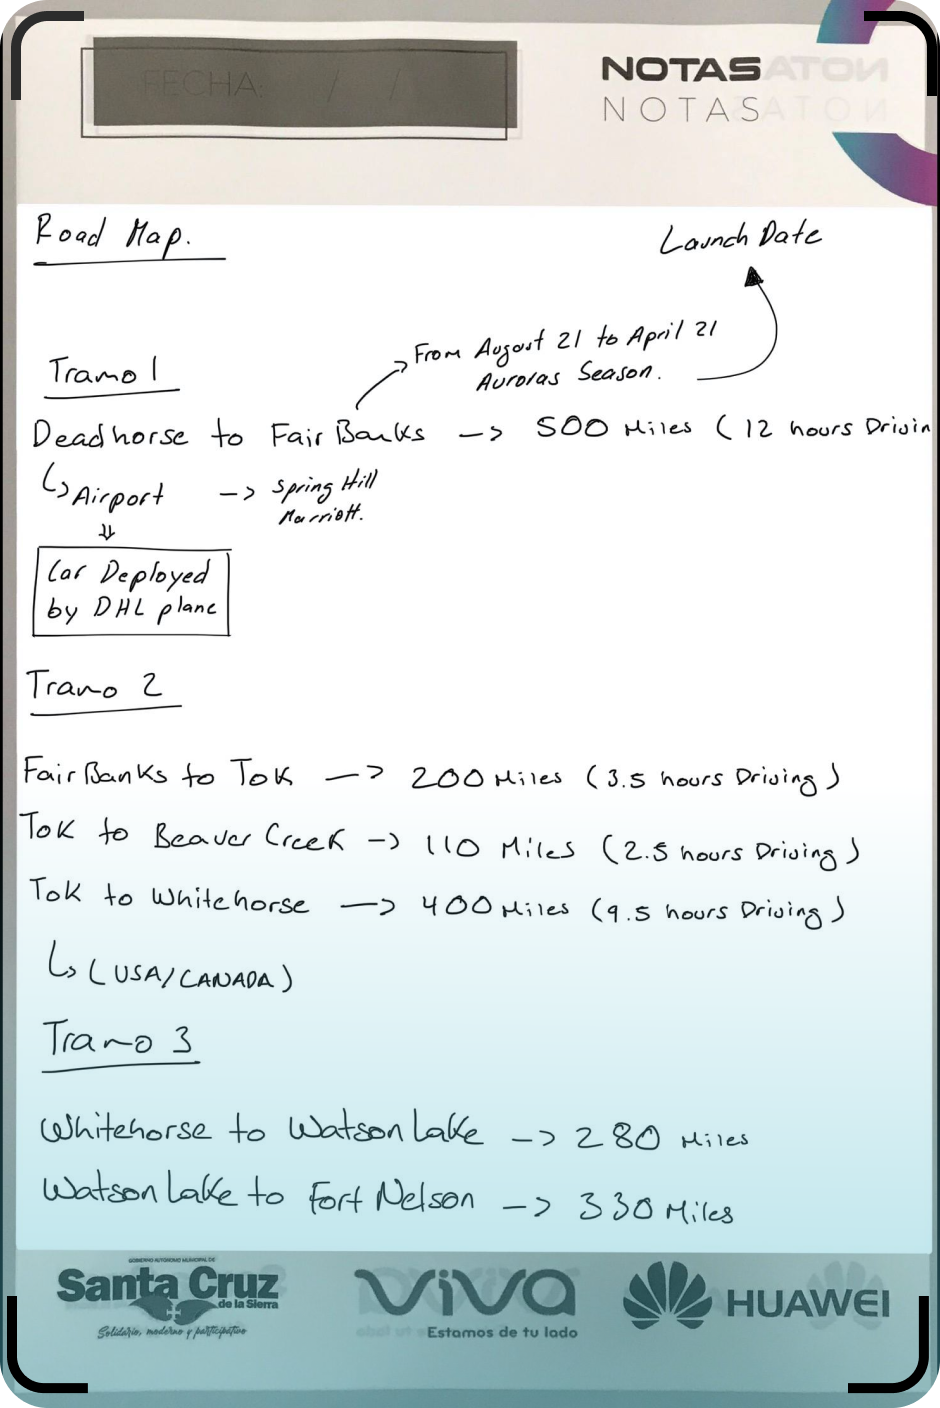 FECHA: / /
NOTAS
NOTAS
Road Map.
Launch Date
From August 21 to April 21
Auroras Season.
Tramo 1
Deadhorse to FairBanks -> 500 Miles (12 hours Drivin
↳ Airport -> Spring Hill
Marriott.
⇓
Car Deployed
by DHL plane
Tramo 2
FairBanks to Tok -> 200 Miles (3.5 hours Driving)
Tok to Beaver Creek -> 110 Miles (2.5 hours Driving)
Tok to Whitehorse -> 400 Miles (9.5 hours Driving)
↳ (USA/CANADA)
Tramo 3
Whitehorse to Watson Lake -> 280 Miles
Watson Lake to Fort Nelson -> 330 Miles
GOBIERNO AUTÓNOMO MUNICIPAL DE
Santa Cruz
de la Sierra
Solidario, moderno y participativo
VIVA
Estamos de tu lado
HUAWEI